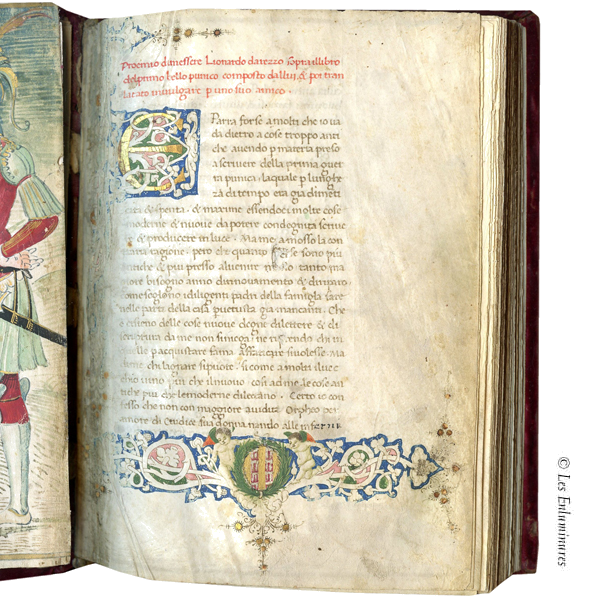 Proemio da messere Lionardo darezzo sopra illibro
del primo bello punico composto da llui & poi tran
latato in uulgare p uno suo amico.
Parra forse a molti che io ua
da dietro a cose troppo anti
che auendo p materia preso
a scriuere della prima guer
ra punica. la quale p lunghe
za di tempo era gia dimeti
cata & spenta. & maxime essendoci molte cose
moderne & nuoue da potere condegnita scriue
re & producere in luce. Ma me a mosso la con
traria ragione. pero che quanto se sono piu
antiche & piu presso al uenir tanto ma
giore bisogno anno di rinouamento &
come sogliono i diligenti padri della famiglia fare
nelle parti della casa p uetusta gia mancanti. Che
cose nuoue
da me non si
p acquistare fama
come a molti il uec
chio uino piu che il nuouo. cosi ad me le cose an
tiche piu che le moderne dilectano. Certo io con
fesso che non con maggiore auidita Orpheo per
amore di Eudice sua donna nando alle
© Les Enluminures